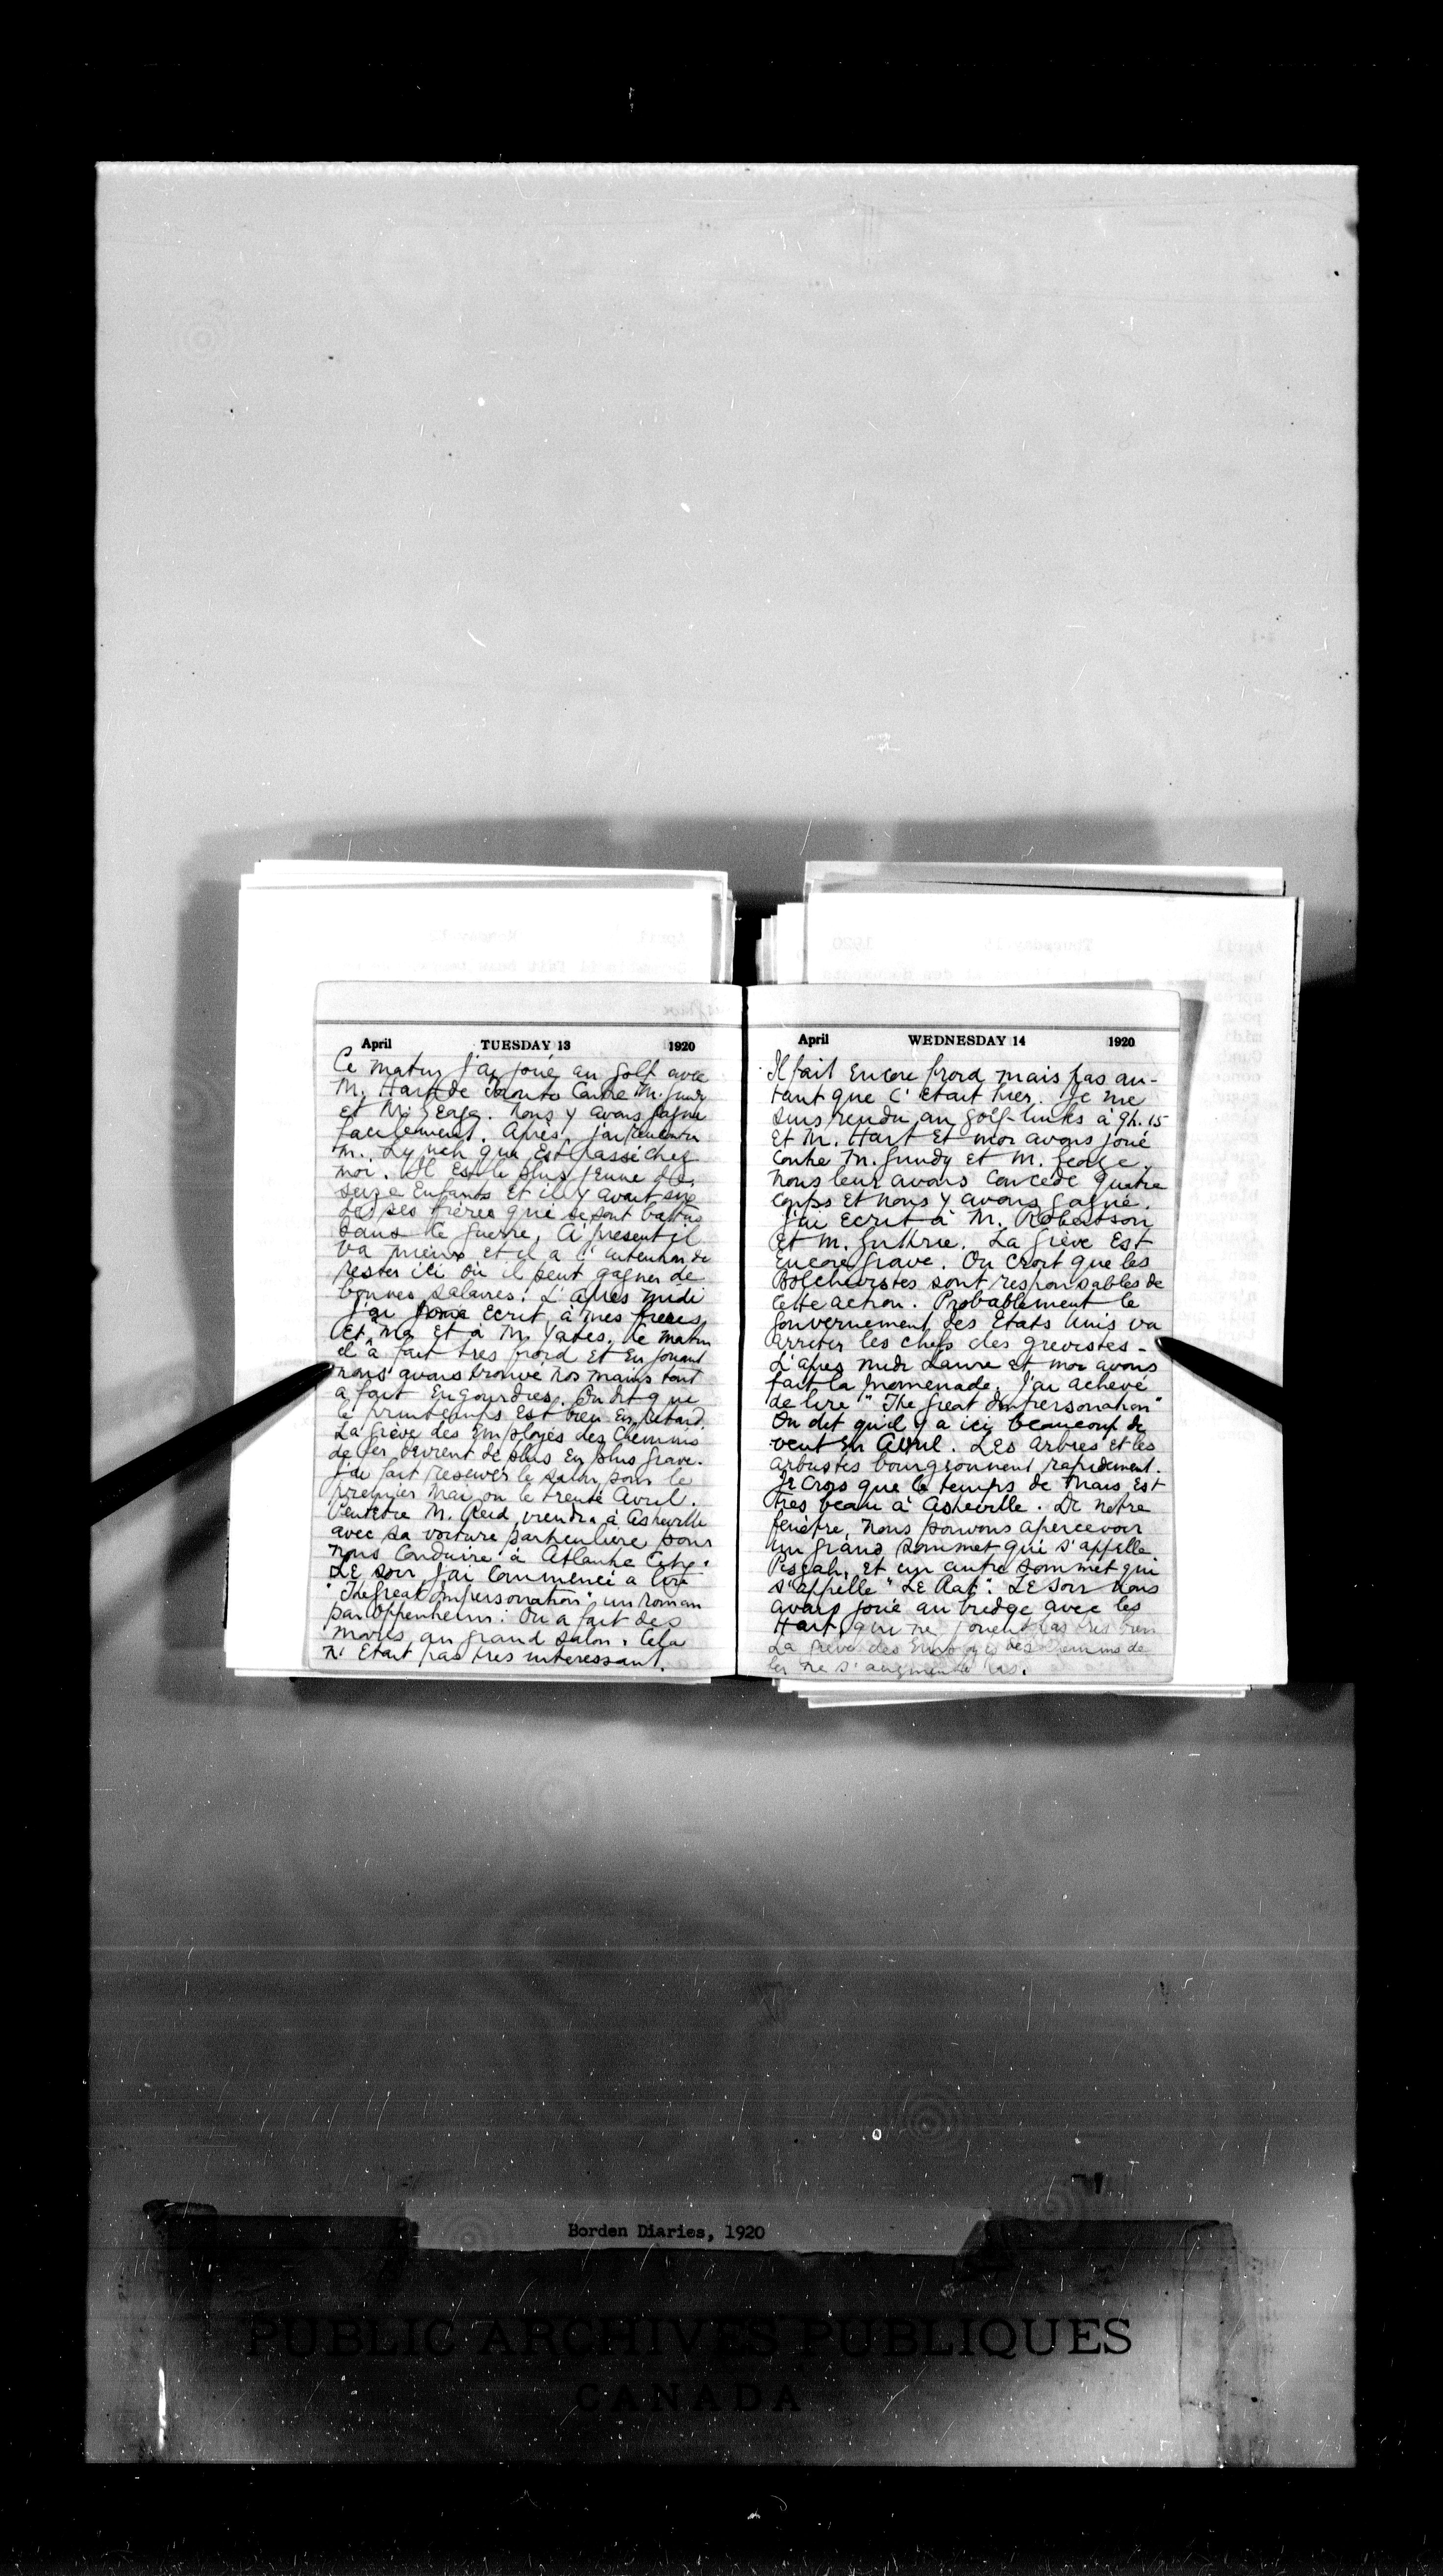 April TUESDAY 13 1920
Ce matin j'ai joué au golf avec
M. Hart de Toronto contre M. Gundy
et M. Seage. Nous y avons gagné
facilement. Après, j'ai rencontré
M. Lynch que est passé chez
moi. Il est le plus jeune de
seize enfants et il y avait six
de ses frères qui se sont battus
dans la guerre. A present il
va mieux et il a l'intention de
rester ici où il peut gagner de
bonnes salaires. L'apres midi
j'ai ecrit à mes freres
et à M. Yates. Le matin
il a fait tres froid et en jouant
nous avons trouvé nos mains tout
a fait engourdies. On dit que
le printemps est bien en retard.
La grève des Employés des Chemins
de fer devient de plus en plus grave.
J'ai fait reserver le salon pour le
premier Mai ou le trente Avril.
Peutetre M. Reid viendra à Asheville
avec sa voiture particuliere pour
nous conduire à Atlantic City.
Le soir j'ai commencé a lire
"The Great Impersonation" un roman
par Oppenheim. On a fait des
movies au grand salon. Cela
n'etait pas tres interessant.
April WEDNESDAY 14 1920
Il fait encore froid mais pas au-
tant que c'etait hier. Je me
suis rendu au golf-links à 9h.15
et M. Hart et moi avons joué
contre M. Gundy et M. Seage.
Nous leur avons concedé quatre
coups et nous y avons gagné.
J'ai ecrit à M. Robertson
et M. Guthrie. La grève est
encore grave. On croit que les
Bolchevistes sont responsables de
cette action. Probablement le
Gouvernement des Etats Unis va
arreter les chefs des grevistes -
L'apres midi Laura et moi avons
fait la promenade. J'ai achevé
de lire "The Great Impersonation"
On dit qu'il y a ici beaucoup de
vent en Avril. Les arbres et les
arbustes bourgeonnent rapidement.
Je crois que le temps de Mais est
tres beau à Asheville. De notre
fenêtre, nous pouvons apercevoir
un grand sommet qui s'appelle
Pisgah, et un autre sommet qui
s'appelle "Le Rat". Le soir nous
avons joué au bridge avec les
Hart, qui ne jouent pas tres bien
La grève des Employés des chemins de
fer ne s'augmente pas.
Borden Diaries, 1920
PUBLIC ARCHIVES PUBLIQUES
CANADA